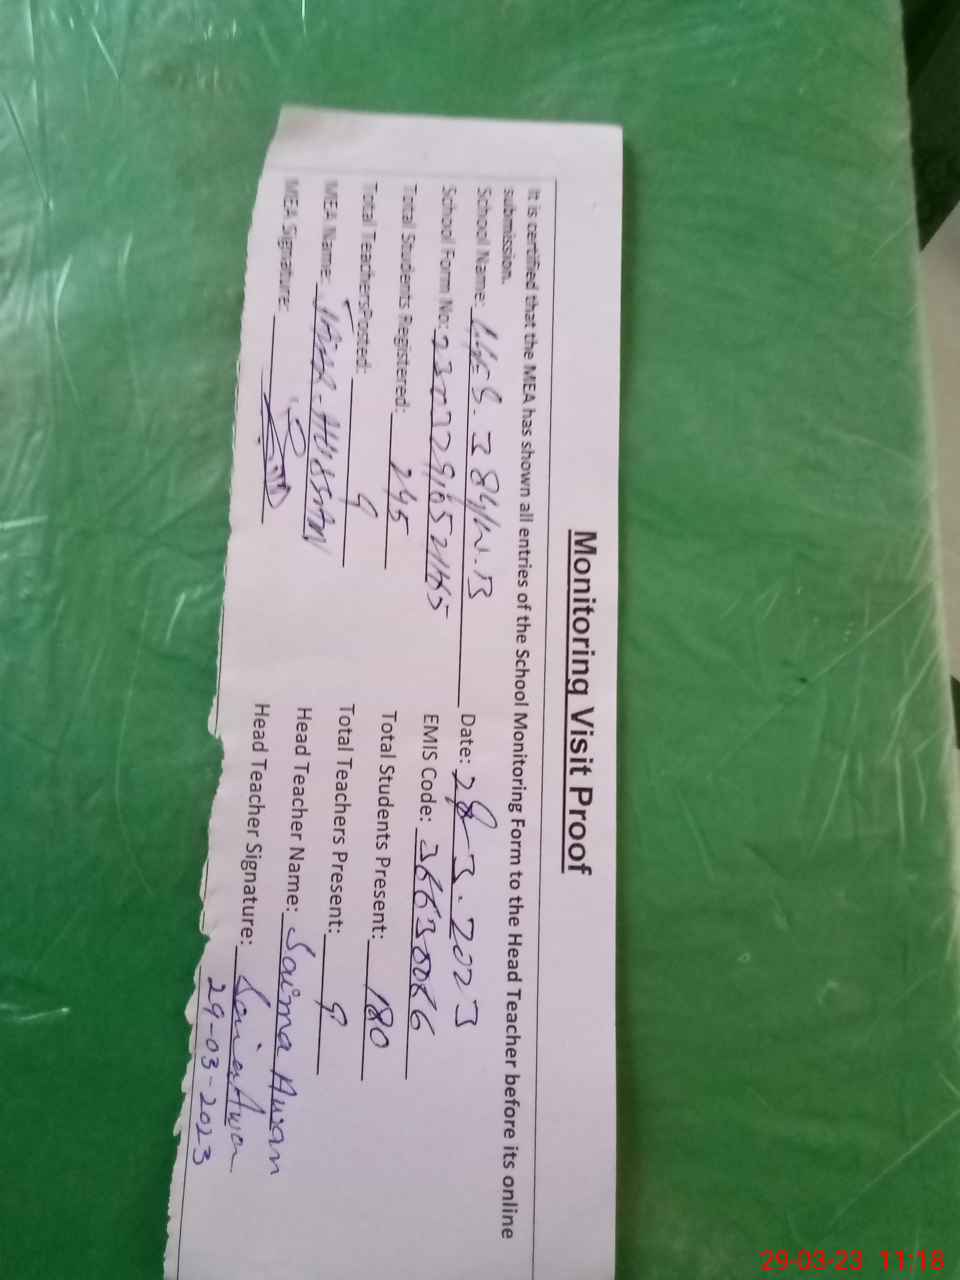 Monitoring Visit Proof
It is certified that the MEA has shown all entries of the School Monitoring Form to the Head Teacher before its online
submission.
School Name: 384/W.B Date: 28-3.2023
School Form No: EMIS Code:
Total Students Registered: 245 Total Students Present: 180
Total TeachersPosted: 9 Total Teachers Present: 9
MEA Name: HUSSAIN Head Teacher Name: Saima Awan
MEA Signature: Head Teacher Signature: Saima Awan
29-03-2023
29-03-23 11:18